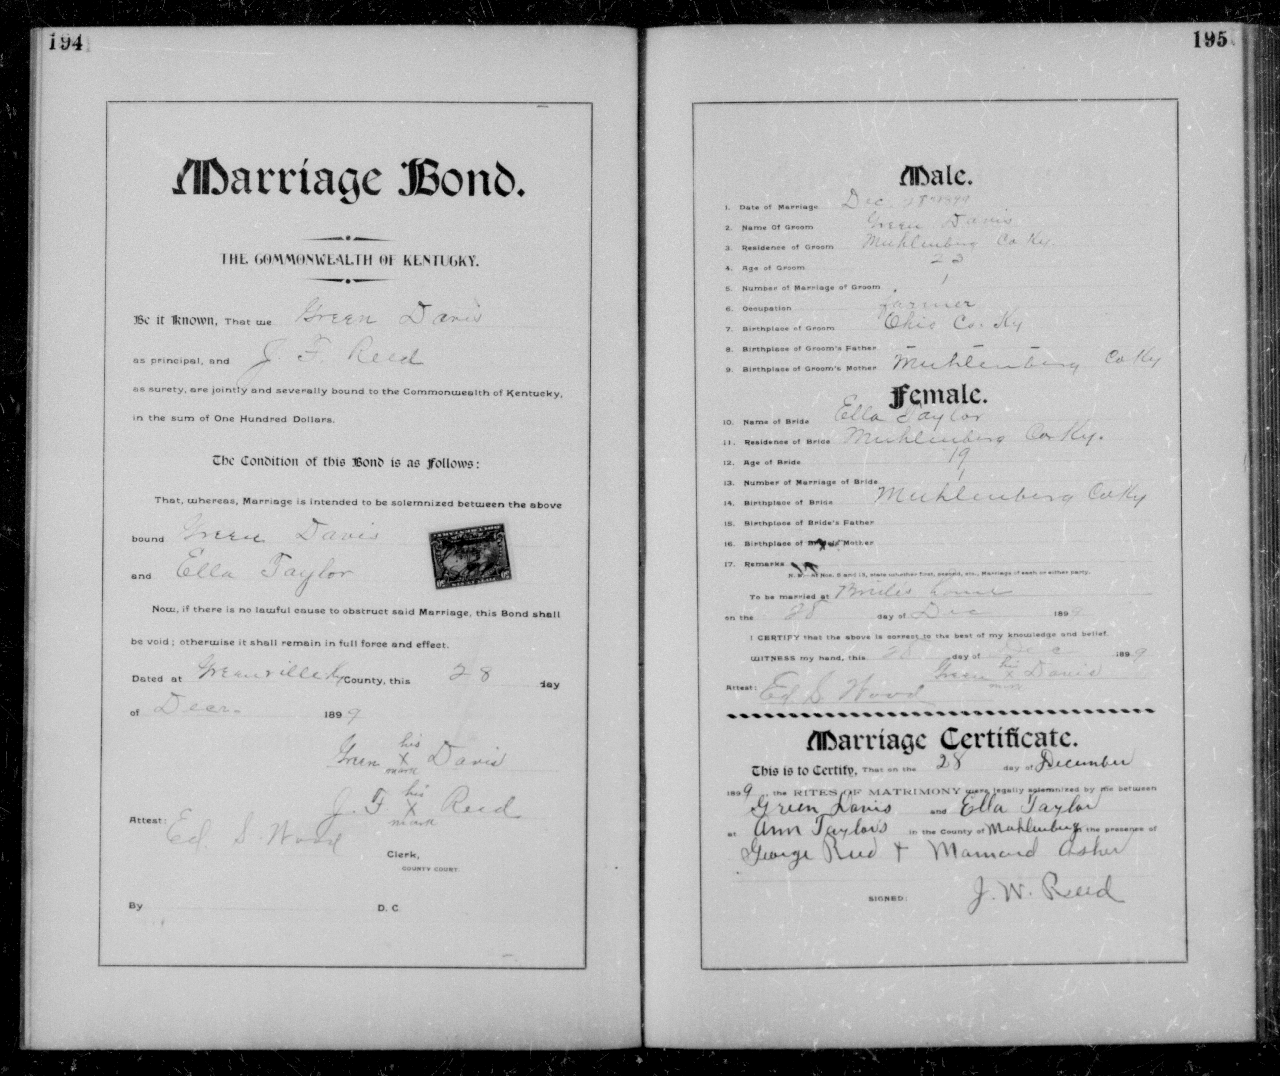 194
Marriage Bond.
THE COMMONWEALTH OF KENTUCKY.
Be it Known, That we Green Davis
as principal, and J. F. Reed
as surety, are jointly and severally bound to the Commonwealth of Kentucky,
in the sum of One Hundred Dollars.
The Condition of this Bond is as Follows:
That, whereas, Marriage is intended to be solemnized between the above
bound Green Davis
and Ella Taylor
Now, if there is no lawful cause to obstruct said Marriage, this Bond shall
be void; otherwise it shall remain in full force and effect.
Dated at Greenville Ky County, this 28 day
of Decr. 1899
his
Green X Davis
mark
his
J. F X Reed
mark
Attest: Ed S. Wood
Clerk,
COUNTY COURT.
By D. C.
195
Male.
1. Date of Marriage Dec 28 1899
2. Name Of Groom Green Davis
3. Residence of Groom Muhlenberg Co Ky
4. Age of Groom 23
5. Number of Marriage of Groom 1
6. Occupation farmer
7. Birthplace of Groom Ohio Co. Ky
8. Birthplace of Groom's Father
9. Birthplace of Groom's Mother Muhlenberg Co Ky
Female.
10. Name of Bride Ella Taylor
11. Residence of Bride Muhlenberg Co. Ky.
12. Age of Bride 19
13. Number of Marriage of Bride 1
14. Birthplace of Bride Muhlenberg Co Ky
15. Birthplace of Bride's Father
16. Birthplace of Bride's Mother
17. Remarks
N. B.—At Nos. 5 and 13, state whether first, second, etc., Marriage of each or either party.
To be married at Brides home
on the 28 day of Dec 1899
I CERTIFY that the above is correct to the best of my knowledge and belief.
WITNESS my hand, this 28 day of Dec 1899
his
Green X Davis
mark
Attest: Ed S Wood
Marriage Certificate.
This is to Certify, That on the 28 day of December
1899, the RITES OF MATRIMONY were legally solemnized by me between
Green Davis and Ella Taylor
at Ann Taylors in the County of Muhlenburg in the presence of
George Reed + Asher
SIGNED: J. W. Reed